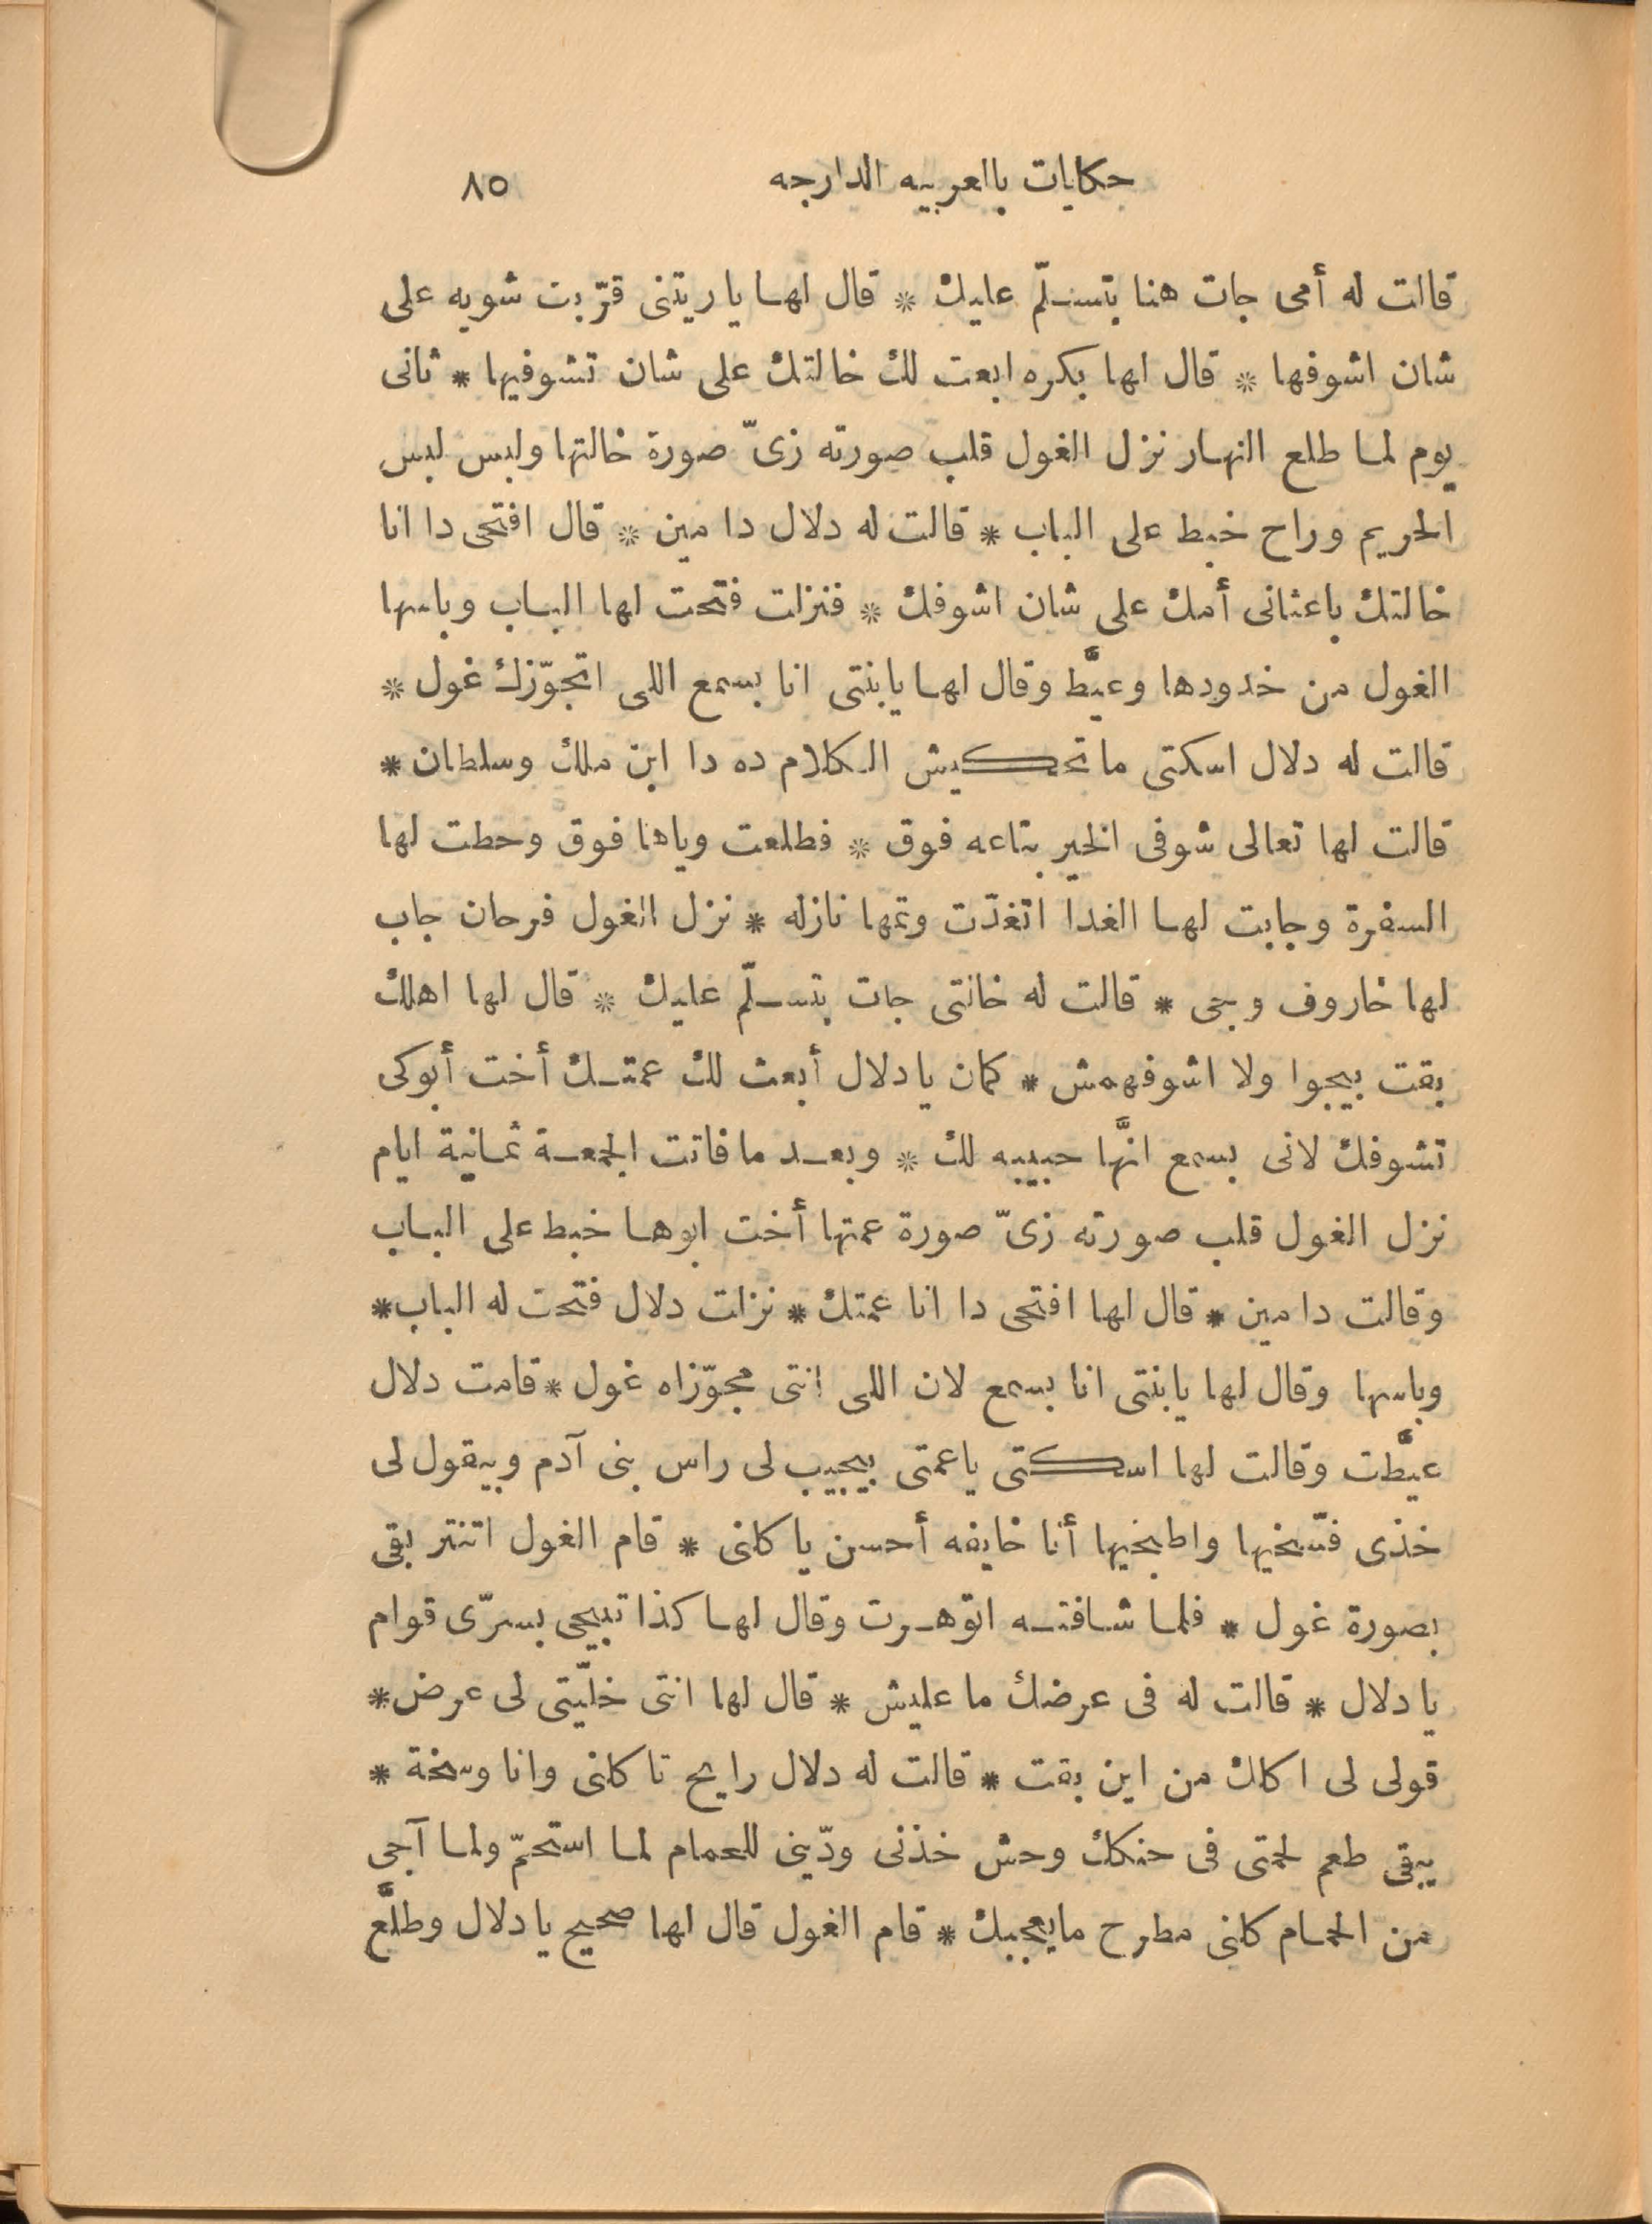 حكايات بالعربيه الدارجه ٨٥
قالت له أمى جات هنا بتسلّم عليك * قال لها ياريتنى قرّبت شويه على
شان اشوفها * قال لها بكره ابعت لك خالتك على شان تشوفيها * ثانى
يوم لما طلع النهار نزل الغول قلب صورته زىّ صورة خالتها ولبس لبس
الحريم وراح خبط على الباب * قالت له دلال دا مين * قال افتحى دا انا
خالتك باعتانى أمك على شان اشوفك * فنزلت فتحت لها الباب وباسها
الغول من خدودها وعيَّط وقال لها يابنتى انا بسمع اللى اتجوّزك غول *
قالت له دلال اسكتى ماتحكيش الكلام ده دا ابن ملك وسلطان *
قالت لها تعالى شوفى الخير بتاعه فوق * فطلعت وياها فوق وحطت لها
السفرة وجابت لها الغدا اتغدّت وتمها نازله * نزل الغول فرحان جاب
لها خاروف وجى * قالت له خالتى جات بتسلّم عليك * قال لها اهلك
بقت بيجوا ولا اشوفهمش * كمان يا دلال أبعث لك عمتك أخت أبوكى
تشوفك لانى بسمع انَّها حبيبه لك * وبعد ما فاتت الجمعة ثمانية ايام
نزل الغول قلب صورته زىّ صورة عمتها أخت ابوها خبط على الباب
وقالت دا مين * قال لها افتحى دا انا عمتك * نزلت دلال فتحت له الباب *
وباسها وقال لها يابنتى انا بسمع لان اللى انتى مجوّزاه غول * قامت دلال
عيَّطت وقالت لها اسكتى ياعمتى بيجيب لى راس بنى آدم وبيقول لى
خذى فسّخيها واطبخيها أنا خايفه أحسن ياكلنى * قام الغول اتنتر بقى
بصورة غول * فلما شافته اتوّهرت وقال لها كذا تبيحى بسرّى قوام
يا دلال * قالت له فى عرضك ما عليش * قال لها انتى خلّيتى لى عرض *
قولى لى اكلك من اين بقت * قالت له دلال رايح تاكلنى وانا وسخة *
يبقى طعم لحمتى فى حنكك وحش خذنى ودّينى للحمام لما استحمّ ولما آجى
من الحمام كلنى مطرح مايعجبك * قام الغول قال لها صحيح يا دلال وطلَّع